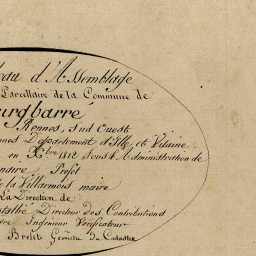 eau d'Assemblage
Parcellaire de la Commune de
urgbarré
Rennes, sud Ouest
nes Département d'Ille, et Vilaine
en Xbre 1812 sous l'Administration de
Préfet
de la Villarmois maire
La Direction de
Directeur des Contributions
Ingénieur Vérificateur
Géomètre du Cadastre